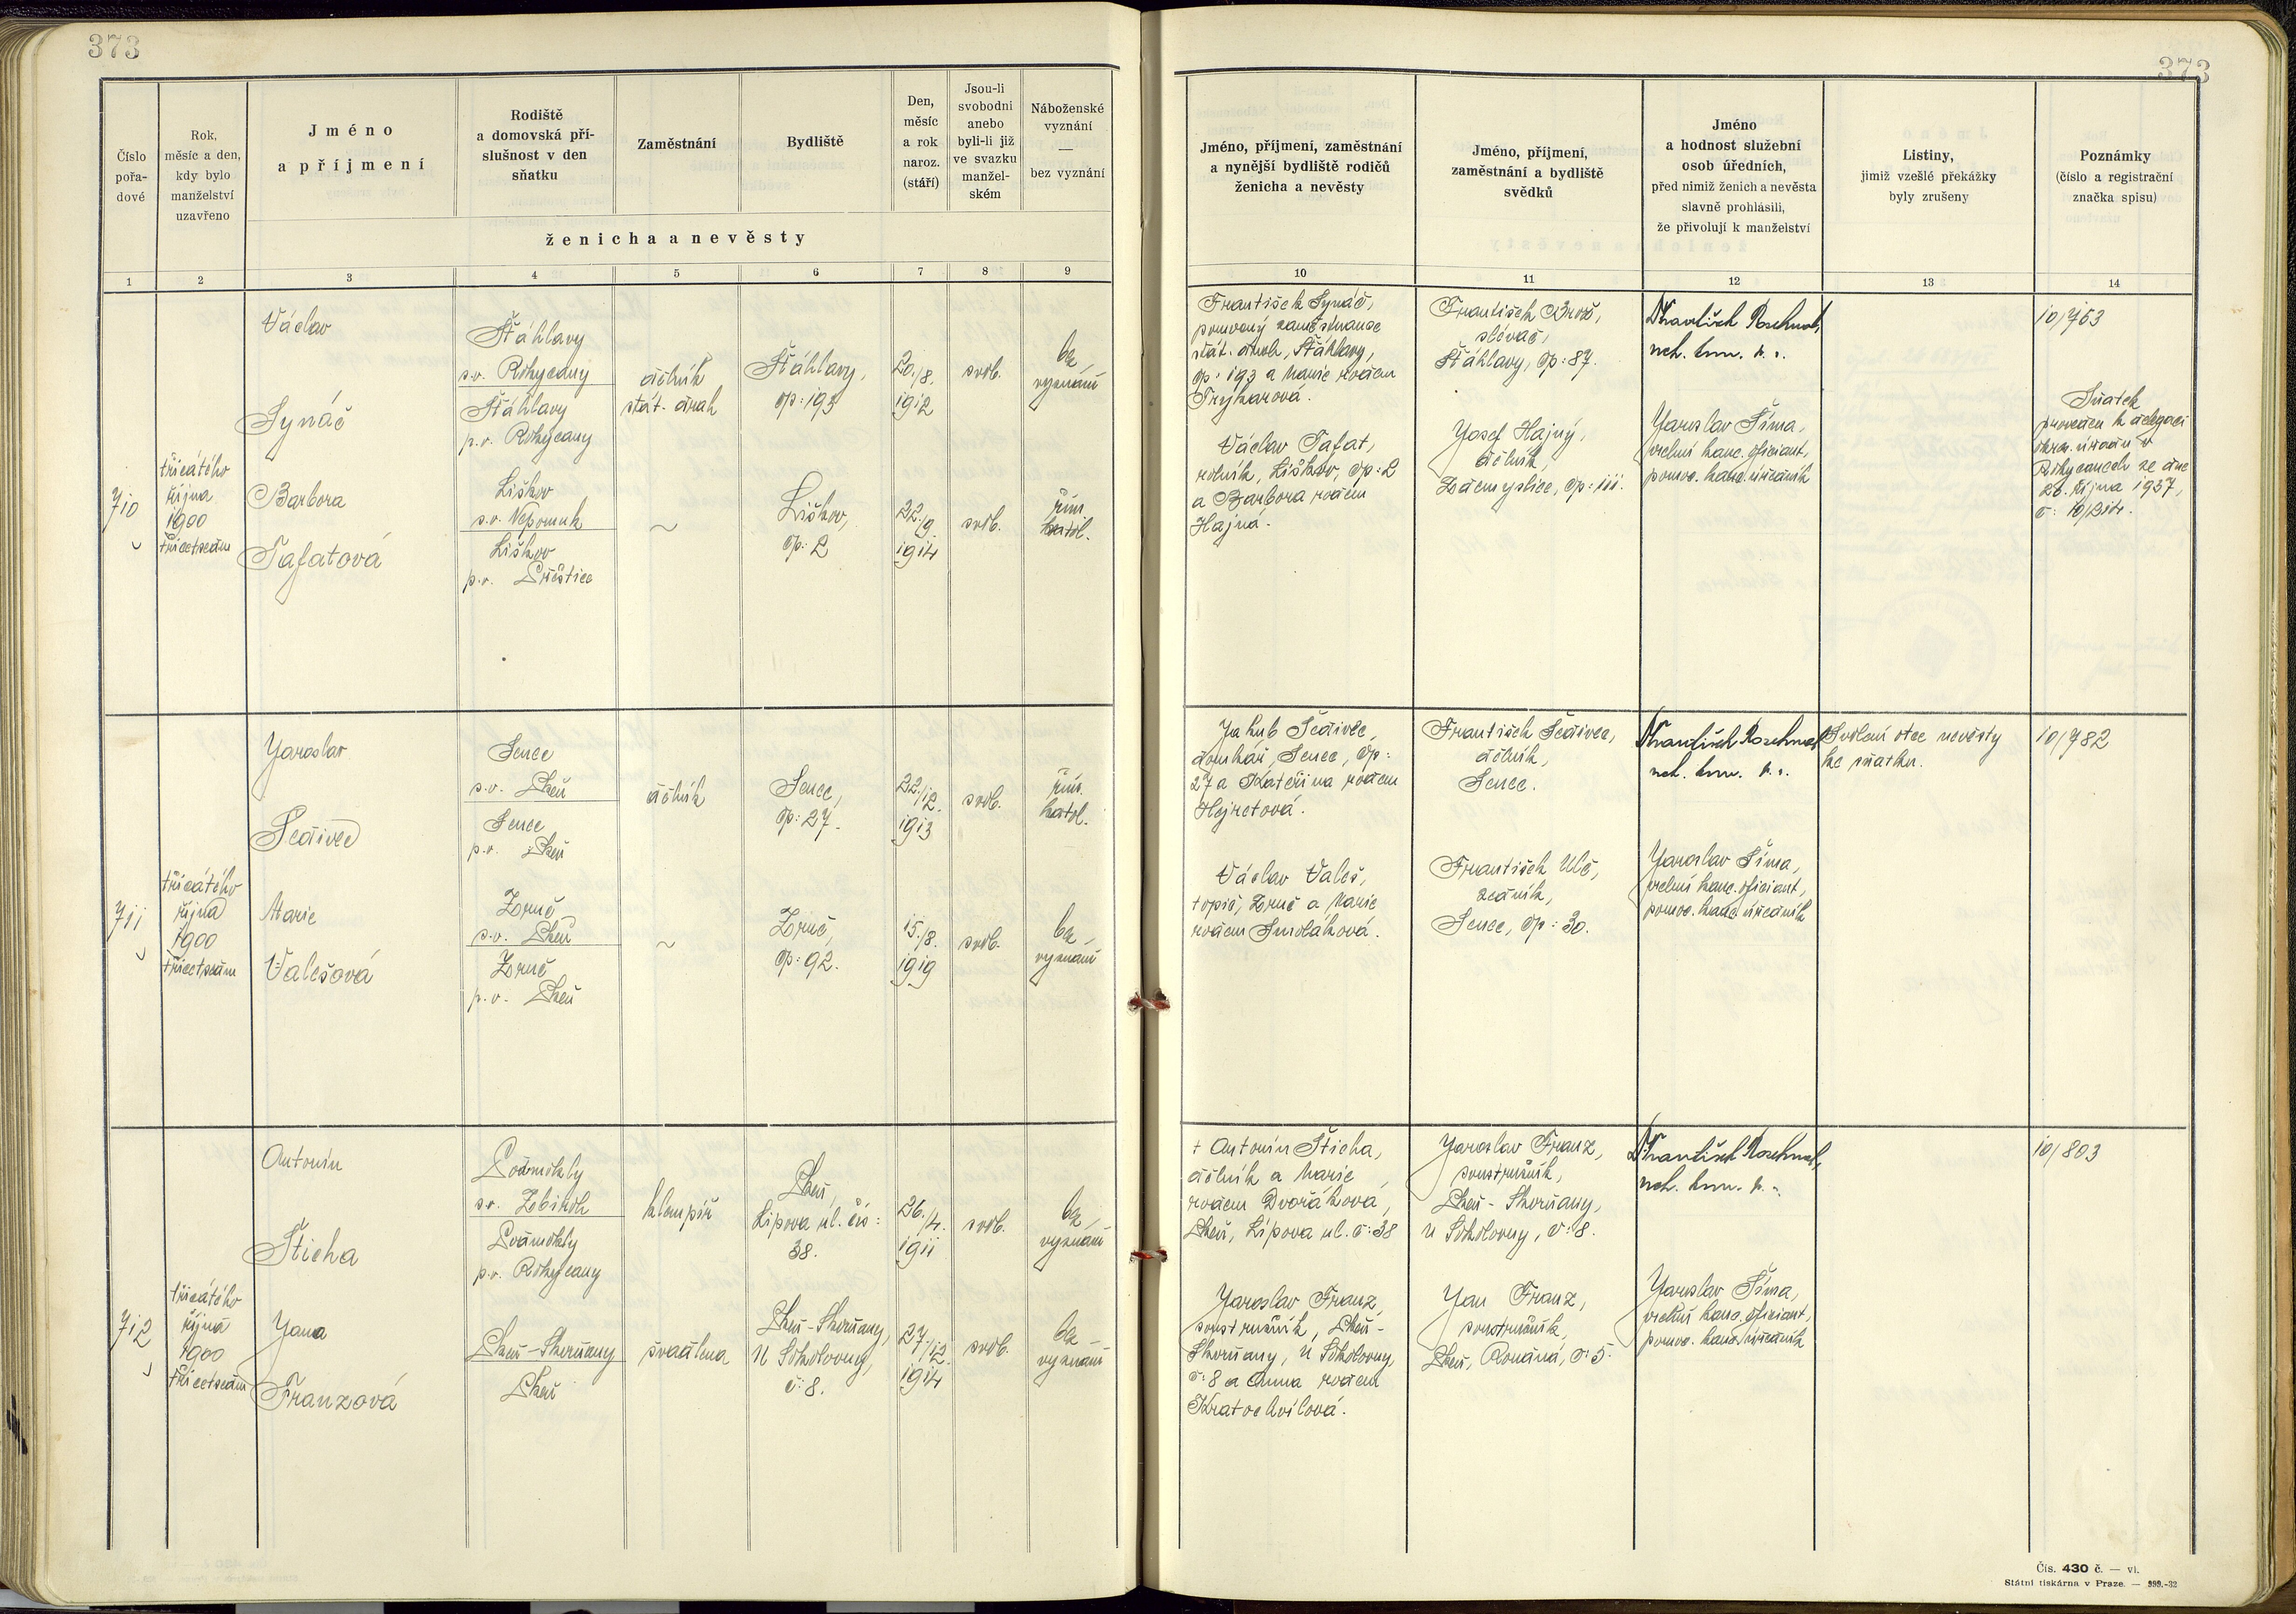 373
373
Číslo
pořa-
dové
Rok,
měsíc a den,
kdy bylo
manželství
uzavřeno
Jméno
a příjmení
Rodiště
a domovská pří-
slušnost v den
sňatku
Zaměstnání
Bydliště
Den,
měsíc
a rok
naroz.
(stáří)
Jsou-li
svobodni
anebo
byli-li již
ve svazku
manžel-
ském
Náboženské
vyznání
—
bez vyznání
ženicha a nevěsty
1 2 3 4 5 6 7 8 9
Jméno, příjmení, zaměstnání
a nynější bydliště rodičů
ženicha a nevěsty
Jméno, příjmení,
zaměstnání a bydliště
svědků
Jméno
a hodnost služební
osob úředních,
před nimiž ženich a nevěsta
slavně prohlásili,
že přivolují k manželství
Listiny,
jimiž vzešlé překážky
byly zrušeny
Poznámky
(číslo a registrační
značka spisu)
10 11 12 13 14
710
třicátého
října
1900
třicetsedm
Václav
Synáč
Barbora
Tafatová
Šťáhlavy
s.o. Rokycany
Šťáhlavy
p.o. Rokycany
Liškov
s.o. Nepomuk
Liškov
p.o. Přeštice
dělník
stát. drah
~
Šťáhlavy,
čp: 193
Liškov,
čp: 2
20./8.
1912
22./9.
1914
svob.
svob.
bez
vyznání
řím.
katol.
František Synáč,
zaměstnanec
stát. drah, Šťáhlavy,
čp: 193 a Marie rodem
Václav Tafat,
rolník, Liškov, čp: 2
a Barbora rodem
Hajná.
František Brož,
slévač,
Šťáhlavy, čp: 87.
Josef Hajný,
dělník,
Zdemyslice, čp: 111.
František
Jaroslav Šíma,
vrchní kanc. oficiant,
pomoc. kanc. úředník
10/753
Sňatek
proveden k delegaci
okres. úřadu v
Rokycanech ze dne
26. října 1937,
č: 10/214.
711
třicátého
října
1900
třicetsedm
Jaroslav
Šedivec
Marie
Valešová
Senec
s.o. Plzeň
Senec
p.o. Plzeň
Zruč
s.o. Plzeň
Zruč
p.o. Plzeň
dělník
~
Senec,
čp: 27.
Zruč,
čp: 92.
22./12.
1913
15./8.
1919
svob.
svob.
řím.
katol.
bez
vyznání
Jakub Šedivec,
domkář, Senec, čp:
27 a Kateřina rodem
Hejretová.
Václav Valeš,
topič, Zruč a Marie
rodem Smoláková.
František Šedivec,
dělník,
Senec.
František Ulč,
zedník,
Senec, čp: 30.
František
Jaroslav Šíma,
vrchní kanc. oficiant,
pomoc. kanc. úředník
Svolení otce nevěsty
ke sňatku.
10/782
712
třicátého
října
1900
třicetsedm
Antonín
Šticha
Jana
Franzová
Podmokly
so. Zbiroh
Podmokly
p.o. Rokycany
Plzeň-Skvrňany
Plzeň
klempíř
švadlena
Plzeň,
Lipová ul. čís:
38.
Plzeň-Skvrňany,
U Sokolovny,
č: 8.
26./4.
1911
27./12.
1914
svob.
svob.
bez
vyznání
bez
vyznání
† Antonín Šticha,
dělník a Marie
rodem Dvořáková,
Plzeň, Lipová ul. č: 38
Jaroslav Franz,
soustružník, Plzeň-
Skvrňany, U Sokolovny,
č: 8 a Anna rodem
Kratochvílová.
Jaroslav Franz,
soustružník,
Plzeň-Skvrňany,
U Sokolovny, č: 8.
Jan Franz,
soustružník,
Plzeň, č: 5.
František
Jaroslav Šíma,
vrchní kanc. oficiant,
pomoc. kanc. úředník
10/803
Čís. 430 č. — vl.
Státní tiskárna v Praze. — 399.-32